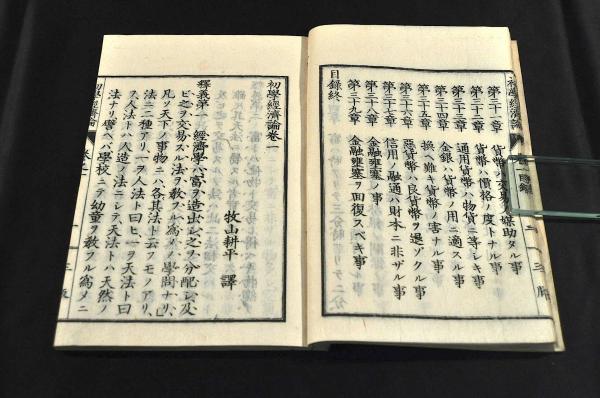 初學經濟論 目録 二 三
第三十一章 貨幣ハ交易ノ媒助タル事
第三十二章 貨幣ハ價格ノ度トナル事
第三十三章 通用貨幣ハ物貨ニ等シキ事
第三十四章 金銀ハ貨幣ノ用ニ適スル事
第三十五章 換ヘ難キ貨幣ノ害ナル事
第三十六章 惡貨幣ハ良貨幣ヲ退ゾクル事
第三十七章 信用ノ融通ハ財本ニ非ザル事
第三十八章 金融壅塞ノ事
第三十九章 金融壅塞ヲ囬復スベキ事
目録終
初學經濟論卷一
牧山耕平 譯
釋義第一 經濟學ハ富ヲ造出シ之ヲ分配シ及
ビ之ヲ交易スル法ヲ敎フル爲メノ學問ナリ、
凡ソ天下ノ事物ニハ各其法ト云フモノアリ、
法ニ二種アリ、一ヲ人法ト曰ヒ一ヲ天法ト曰
ス人法トハ人造ノ法ニシテ、天法トハ天然ノ
法ナリ譬ヘバ學校ニテ幼童ヲ敎フル爲メニ
初學經濟論 卷一 一 三